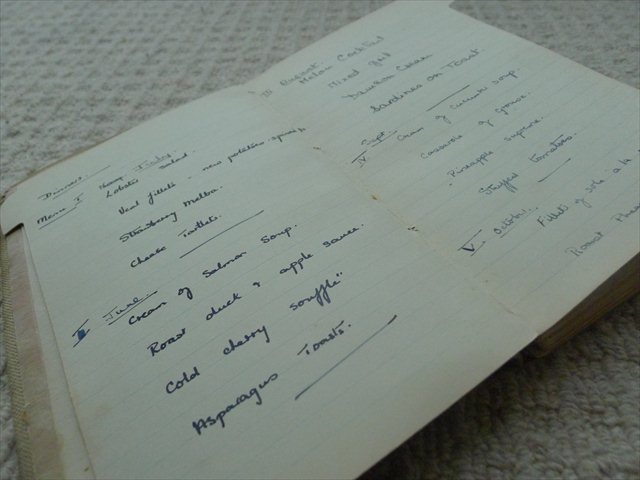 Dinners.
Menu I
Lobster Salad.
Veal fillets - new potatoes - spinach
Strawberry Melba.
Cheese Tartlets.
II June
Cream of Salmon Soup.
Roast duck & apple sauce.
Cold cherry soufflé"
Asparagus Toasts.
III August
Melon Cocktail
Mixed grill
Cream
Sardines on Toast.
IV Sept.
Cream of cucumber soup
Casserole of grouse.
Pineapple supreme.
Stuffed tomatoes.
V October.
Fillets of sole a la
Roast